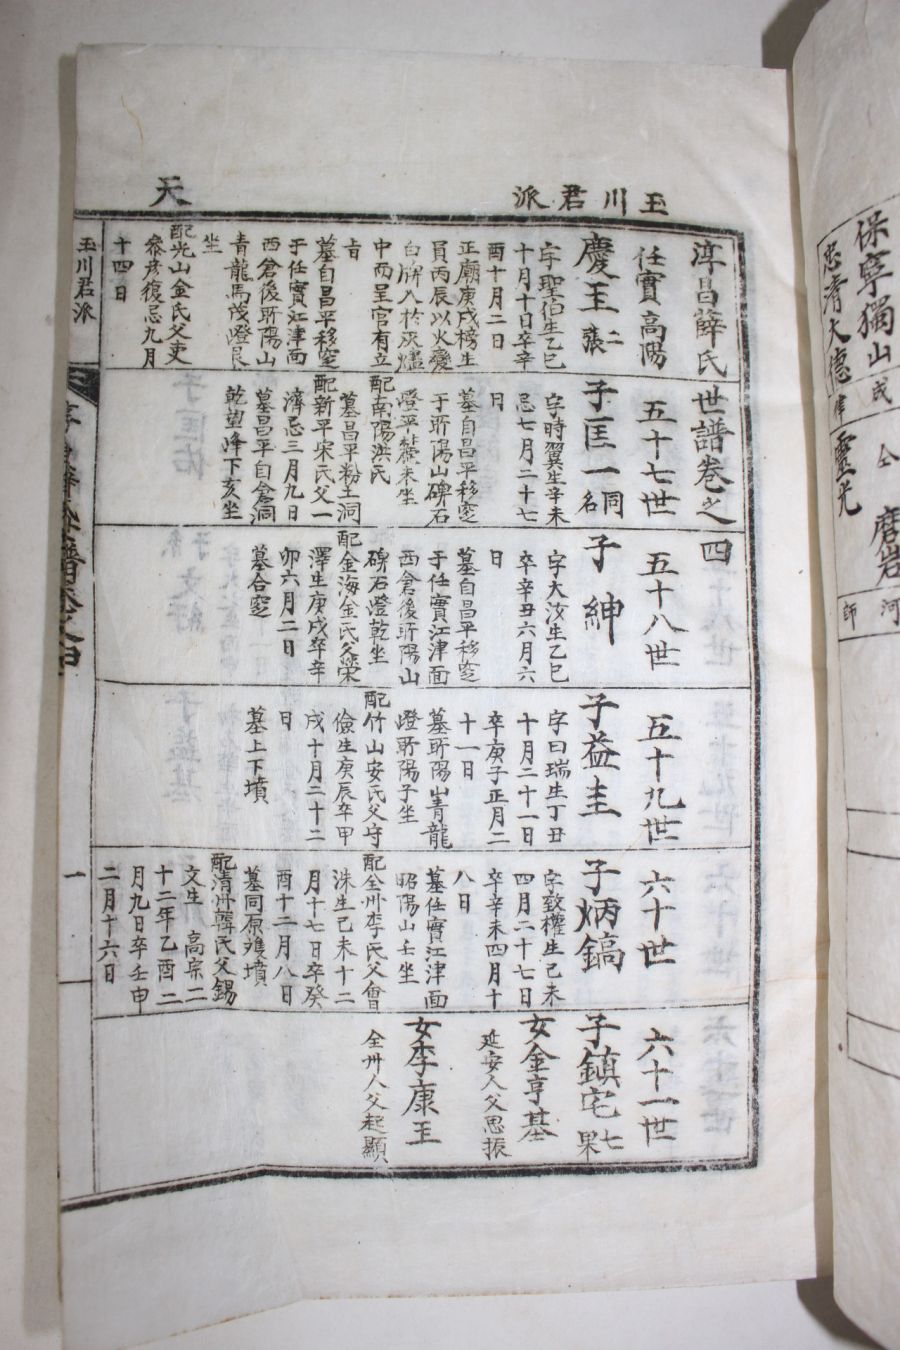 玉川君派
天
淳昌薛氏世譜卷之四
任實高陽
五十七世
五十八世
五十九世
六十世
六十一世
慶王
二張
字聖宿生乙巳
十月十日卒辛
酉十月二日
正廟庚戌榜生
員丙辰以火變
白牌入於灰燼
中而呈官有立
旨
墓自昌平移窆
于任實江津面
西倉後昕陽山
青龍馬茂嶝艮
坐
配光山金氏父吏
參彥復忌九月
十四日
子匡一
同名
字時翼生辛未
忌七月二十七
日
墓自昌平移窆
于昕陽山碑石
嶝平葬未坐
配南陽洪氏
墓昌平粉土洞
配新平宋氏父一
濟忌三月九日
墓昌平自倉洞
乾望峰下亥坐
子紳
字大汝生乙巳
卒辛丑六月六
日
墓自昌平移窆
于任實江津面
西倉後昕陽山
碑石嶝乾坐
配金海金氏父榮
澤生庚戌卒辛
卯六月二日
墓合窆
子益圭
字曰瑞生丁丑
十月二十一日
卒庚子正月二
十一日
墓昕陽山青龍
嶝昕陽子坐
配竹山安氏父守
儉生庚辰卒甲
戌十月二十二
日
墓上下墳
子炳鎬
字致權生己未
四月二十七日
卒辛未四月十
八日
墓任實江津面
昭陽山壬坐
配全州李氏父會
洙生己未十二
月十七日卒癸
酉十二月八日
墓同原雙墳
配清州韓氏父錫
文生 高宗二
十二年乙酉二
月九日卒壬申
二月十六日
子鎮宅
七果
女金亨基
延安人父思振
女李康王
全州人父起顯
玉川君派
一
保寧獨山
忠清大德
靈光